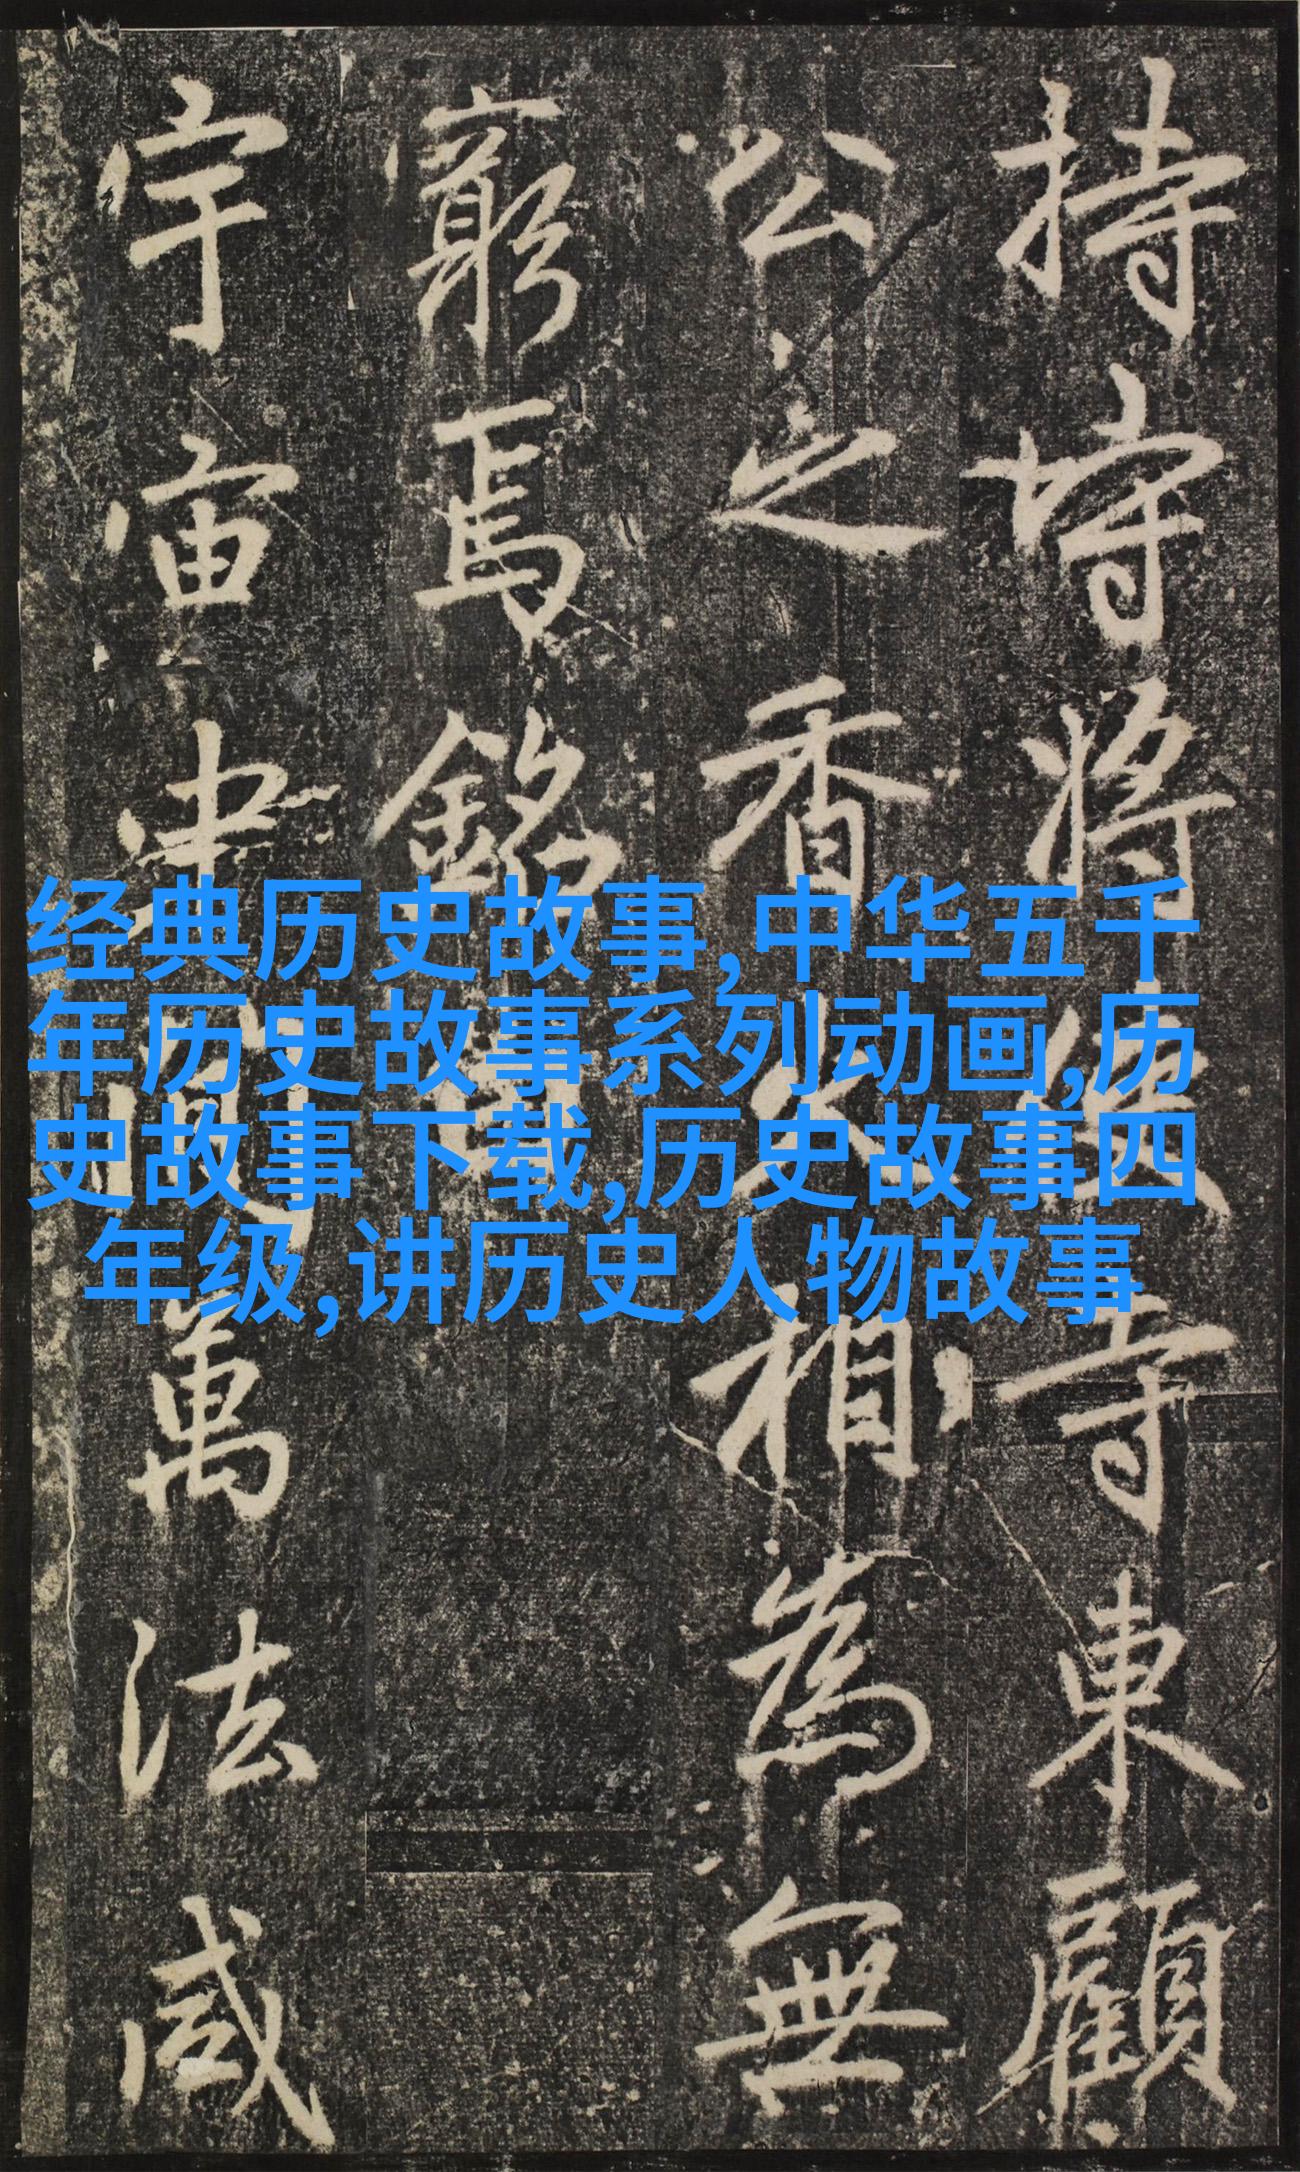 持將寺東顧
公之香相為無
窮焉銘
宇宙萬法咸
经典历史故事,中华五千
年历史故事系列动画,历
史故事下载,历史故事四
年级,讲历史人物故事